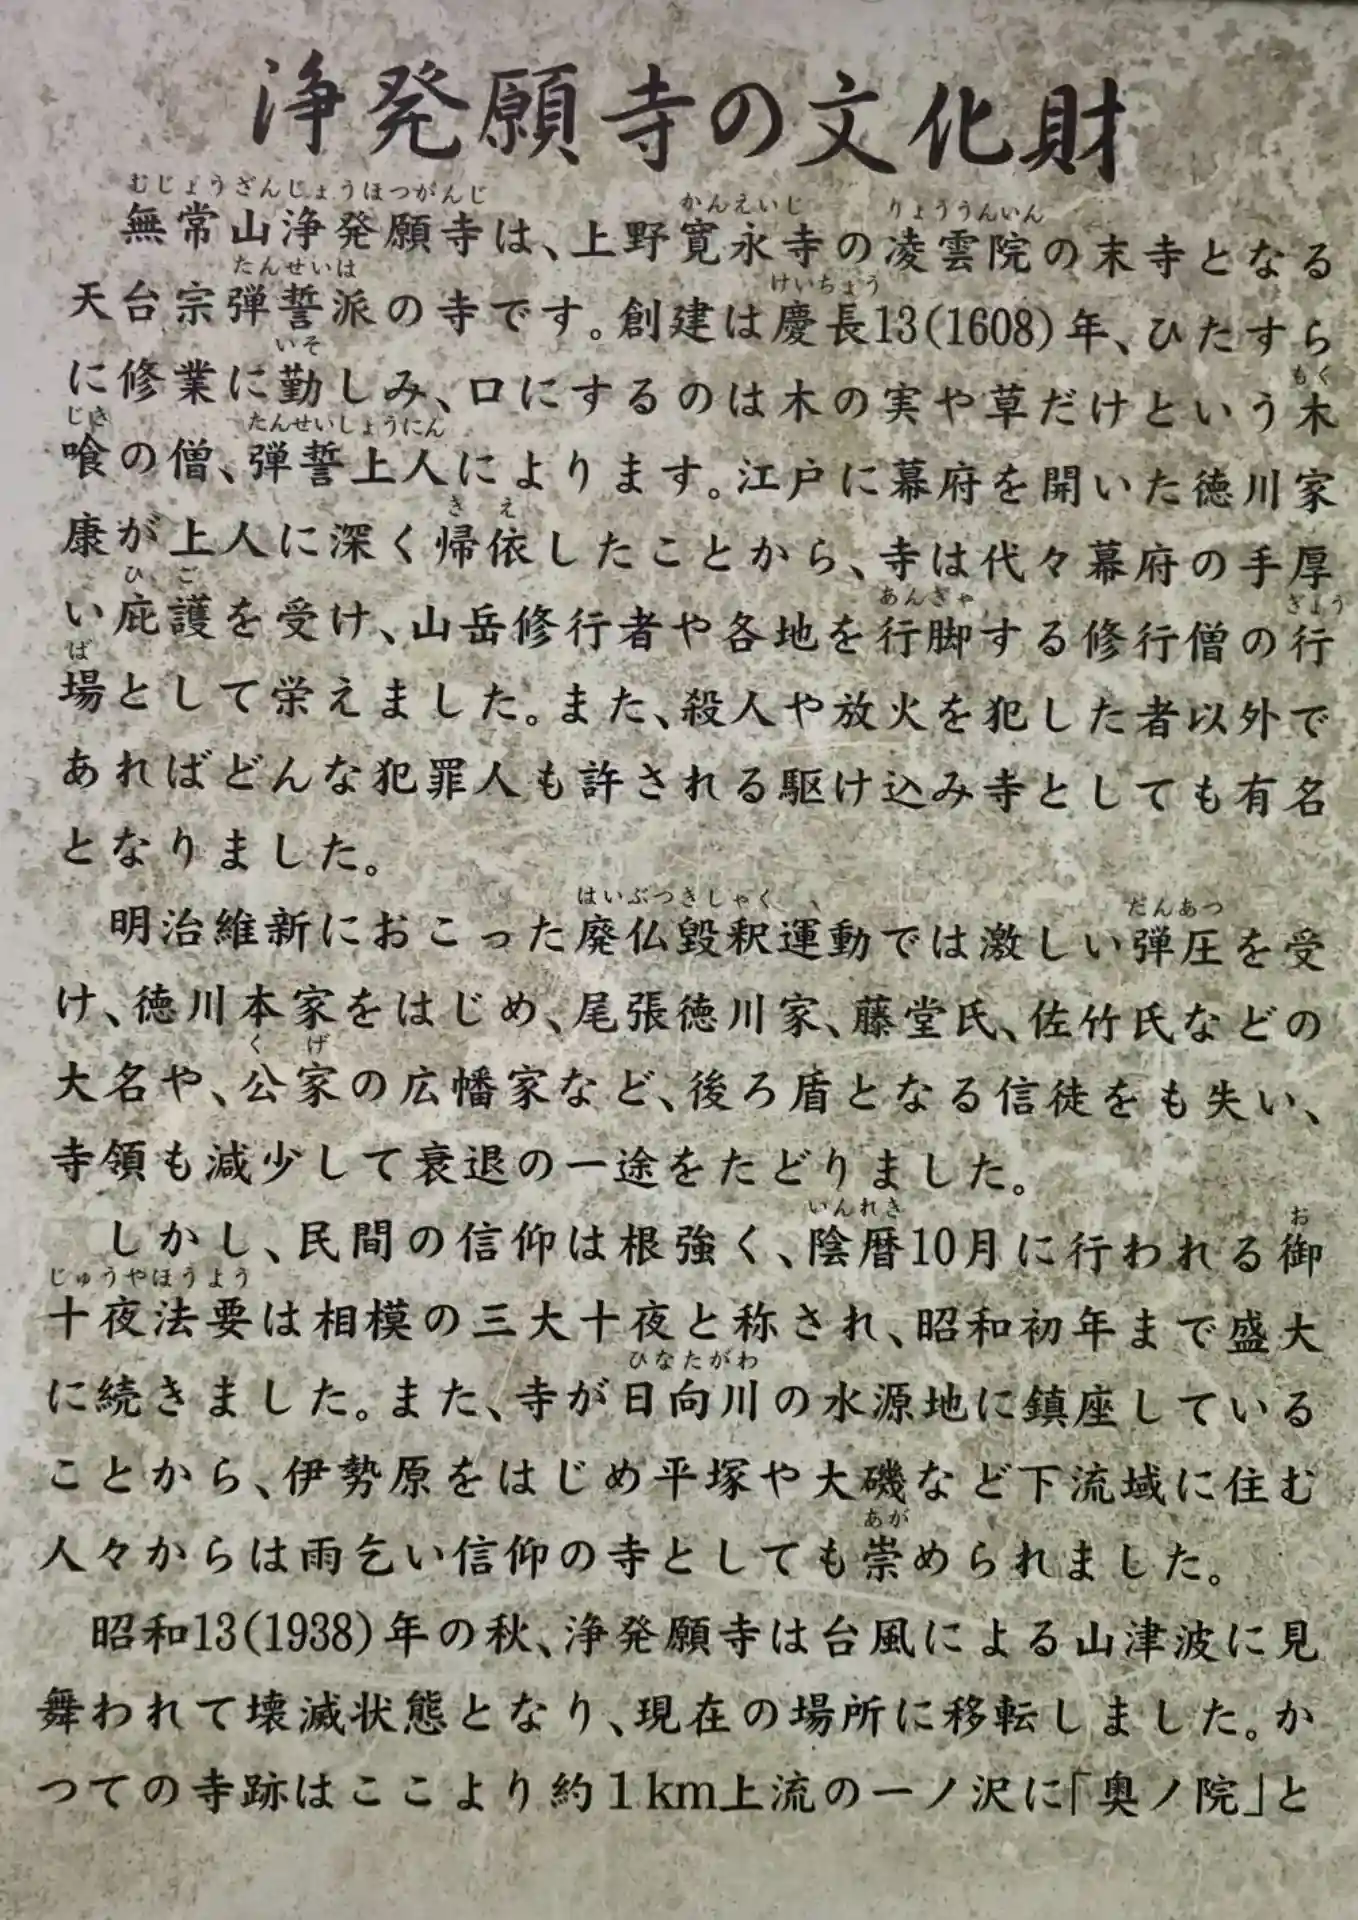 浄発願寺の文化財
むじょうざんじょうほつがんじ かんえいじ りょううんいん
無常山浄発願寺は、上野寛永寺の凌雲院の末寺となる
たんせいは けいちょう
天台宗弾誓派の寺です。創建は慶長13(1608)年、ひたすら
いそ もく
に修業に勤しみ、口にするのは木の実や草だけという木
じき たんせいしょうにん
喰の僧、弾誓上人によります。江戸に幕府を開いた徳川家
きえ
康が上人に深く帰依したことから、寺は代々幕府の手厚
ひご あんぎゃ ぎょう
い庇護を受け、山岳修行者や各地を行脚する修行僧の行
ば
場として栄えました。また、殺人や放火を犯した者以外で
あればどんな犯罪人も許される駆け込み寺としても有名
となりました。
はいぶつきしゃく だんあつ
明治維新におこった廃仏毀釈運動では激しい弾圧を受
け、徳川本家をはじめ、尾張徳川家、藤堂氏、佐竹氏などの
くげ
大名や、公家の広幡家など、後ろ盾となる信徒をも失い、
寺領も減少して衰退の一途をたどりました。
いんれき お
しかし、民間の信仰は根強く、陰暦10月に行われる御
じゅうやほうよう
十夜法要は相模の三大十夜と称され、昭和初年まで盛大
ひなたがわ
に続きました。また、寺が日向川の水源地に鎮座している
ことから、伊勢原をはじめ平塚や大磯など下流域に住む
あが
人々からは雨乞い信仰の寺としても崇められました。
昭和13(1938)年の秋、浄発願寺は台風による山津波に見
舞われて壊滅状態となり、現在の場所に移転しました。か
つての寺跡はここより約1km上流の一ノ沢に「奥ノ院」と